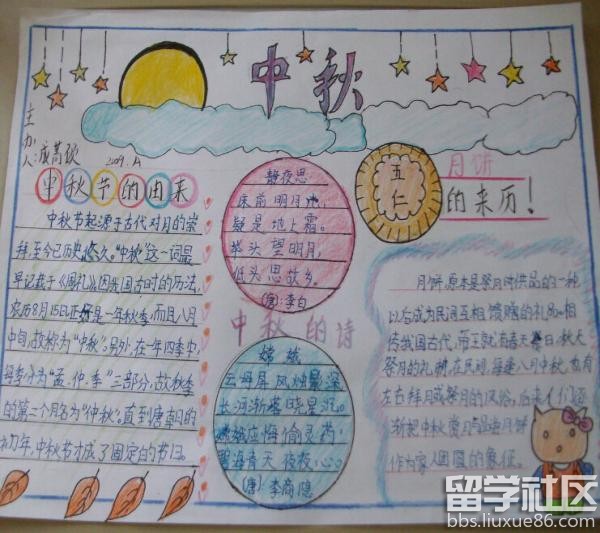 中秋
主办
人:成
2009.
中秋节的由来
中秋节起源于古代对月的崇
拜,至今已历史悠久。"中秋"这一词最
早记载于《周礼》因我国古时的历法,
农历8月15日正好是一年秋季,而且八月
中旬,故称为"中秋"。另外,在一年四季中,
每季分为"孟、仲、季"三部分,故秋季
的第二个月名为"仲秋"。直到唐朝的
初年,中秋节才成了固定的节日。
静夜思
床前明月光,
疑是地上霜。
头望明月,
低头思故乡。
(唐)李白
中秋的诗
嫦娥
云母屏风烛影深
长河渐落晓星沉。
嫦娥应悔偷灵药,
碧海青天夜夜心。
(唐)李商隐
五
仁
月饼
的来历!
月饼,原本是祭月时供品的一种
以后成为民间互相馈赠的礼品。相
传我国古代,帝王就有春天祭日,秋天
祭月的礼制,在民间,每逢八月中秋,也有
左右拜月或祭月的风俗,后来人们逐
渐把中秋赏月与品尝月饼
作为家人团圆的象征。
留学社区
bbs.liuxue86.com